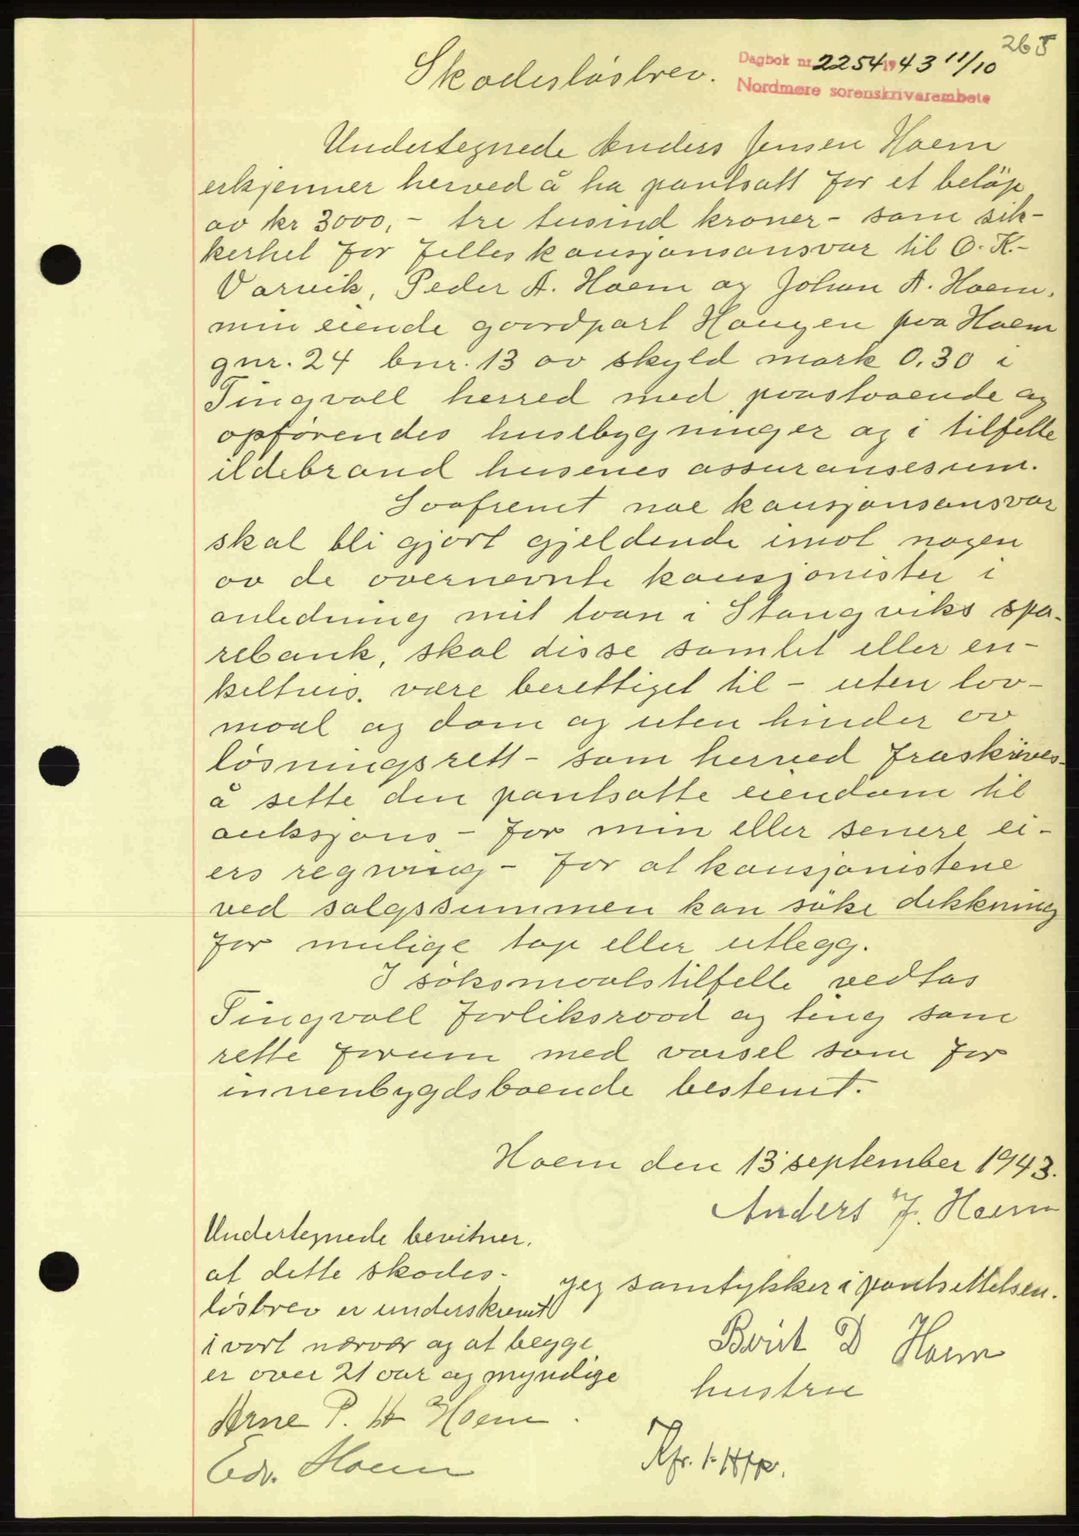 265
Skadesløsbrev.
Dagbok nr. 2254 1943 11/10
Nordmøre sorenskrivarembete
Undertegnede Anders Jensen Hoem
erkjenner herved å ha pantsatt for et beløp
av kr 3000,- tre tusind kroner - som sik-
kerhet for felles kausjonsansvar til O. K.
Varvik, Peder A. Hoem og Johan A. Hoem,
min eiende gaardpart Haugen paa Hoem
gnr. 24 bnr. 13 av skyld mark 0.30 i
Tingvoll herred med paastaaende og
opførendes husebygninger og i tilfelle
ildebrand husenes assuransesum.
Saafremt noe kausjonsansvar
skal bli gjort gjeldende imot nogen
av de overnevnte kausjonister i
anledning mit laan i Stangviks spa-
rebank, skal disse samlet eller en-
keltvis. være berettiget til - uten lov-
maal og dom og uten hinder av
løsningsrett - som herved fraskrives -
å sette den pantsatte eiendom til
auksjons - for min eller senere ei-
ers regning - for at kausjonistene
ved salgssummen kan søke dekkning
for mulige tap eller utlegg.
I søksmaalstilfelle vedtas
Tingvoll forliksraad og ting som
rette forum med varsel som for
innenbygdsboende bestemt.
Hoem den 13 september 1943.
Anders J. Hoem
Undertegnede bevitner.
at dette skades-
løsbrev er underskrevet
i vort nærvær og at begge
er over 21 aar og myndige
Arne P. H Hoem.
Edv. Hoem
jeg samtykker i pantsettelsen.
Berit D Hoem
hustru
Kfr. 1.